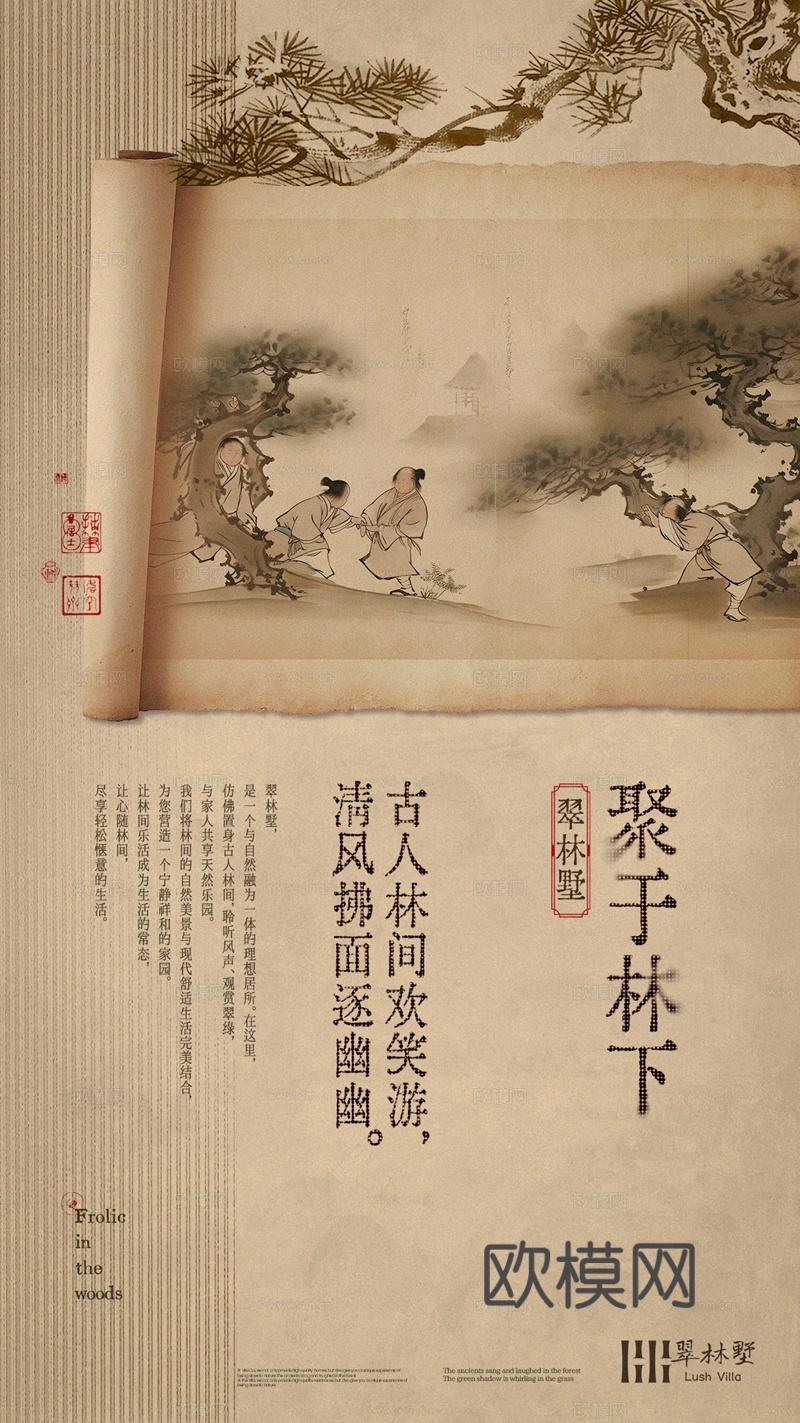 聚于林下
翠林墅
古人林间欢笑游，
清风拂面逐幽幽。
翠林墅，
是一个与自然融为一体的理想居所。在这里，
仿佛置身古人林间，聆听风声、观赏翠绿，
与家人共享天然乐园。
我们将林间的自然美景与现代舒适生活完美结合，
为您营造一个宁静祥和的家园。
让林间乐活成为生活的常态，
让心随林间，
尽享轻松惬意的生活。
Frolic
in
the
woods
欧模网
The ancients sang and laughed in the forest
The green shadow is whirling in the grass
翠林墅
Lush Villa